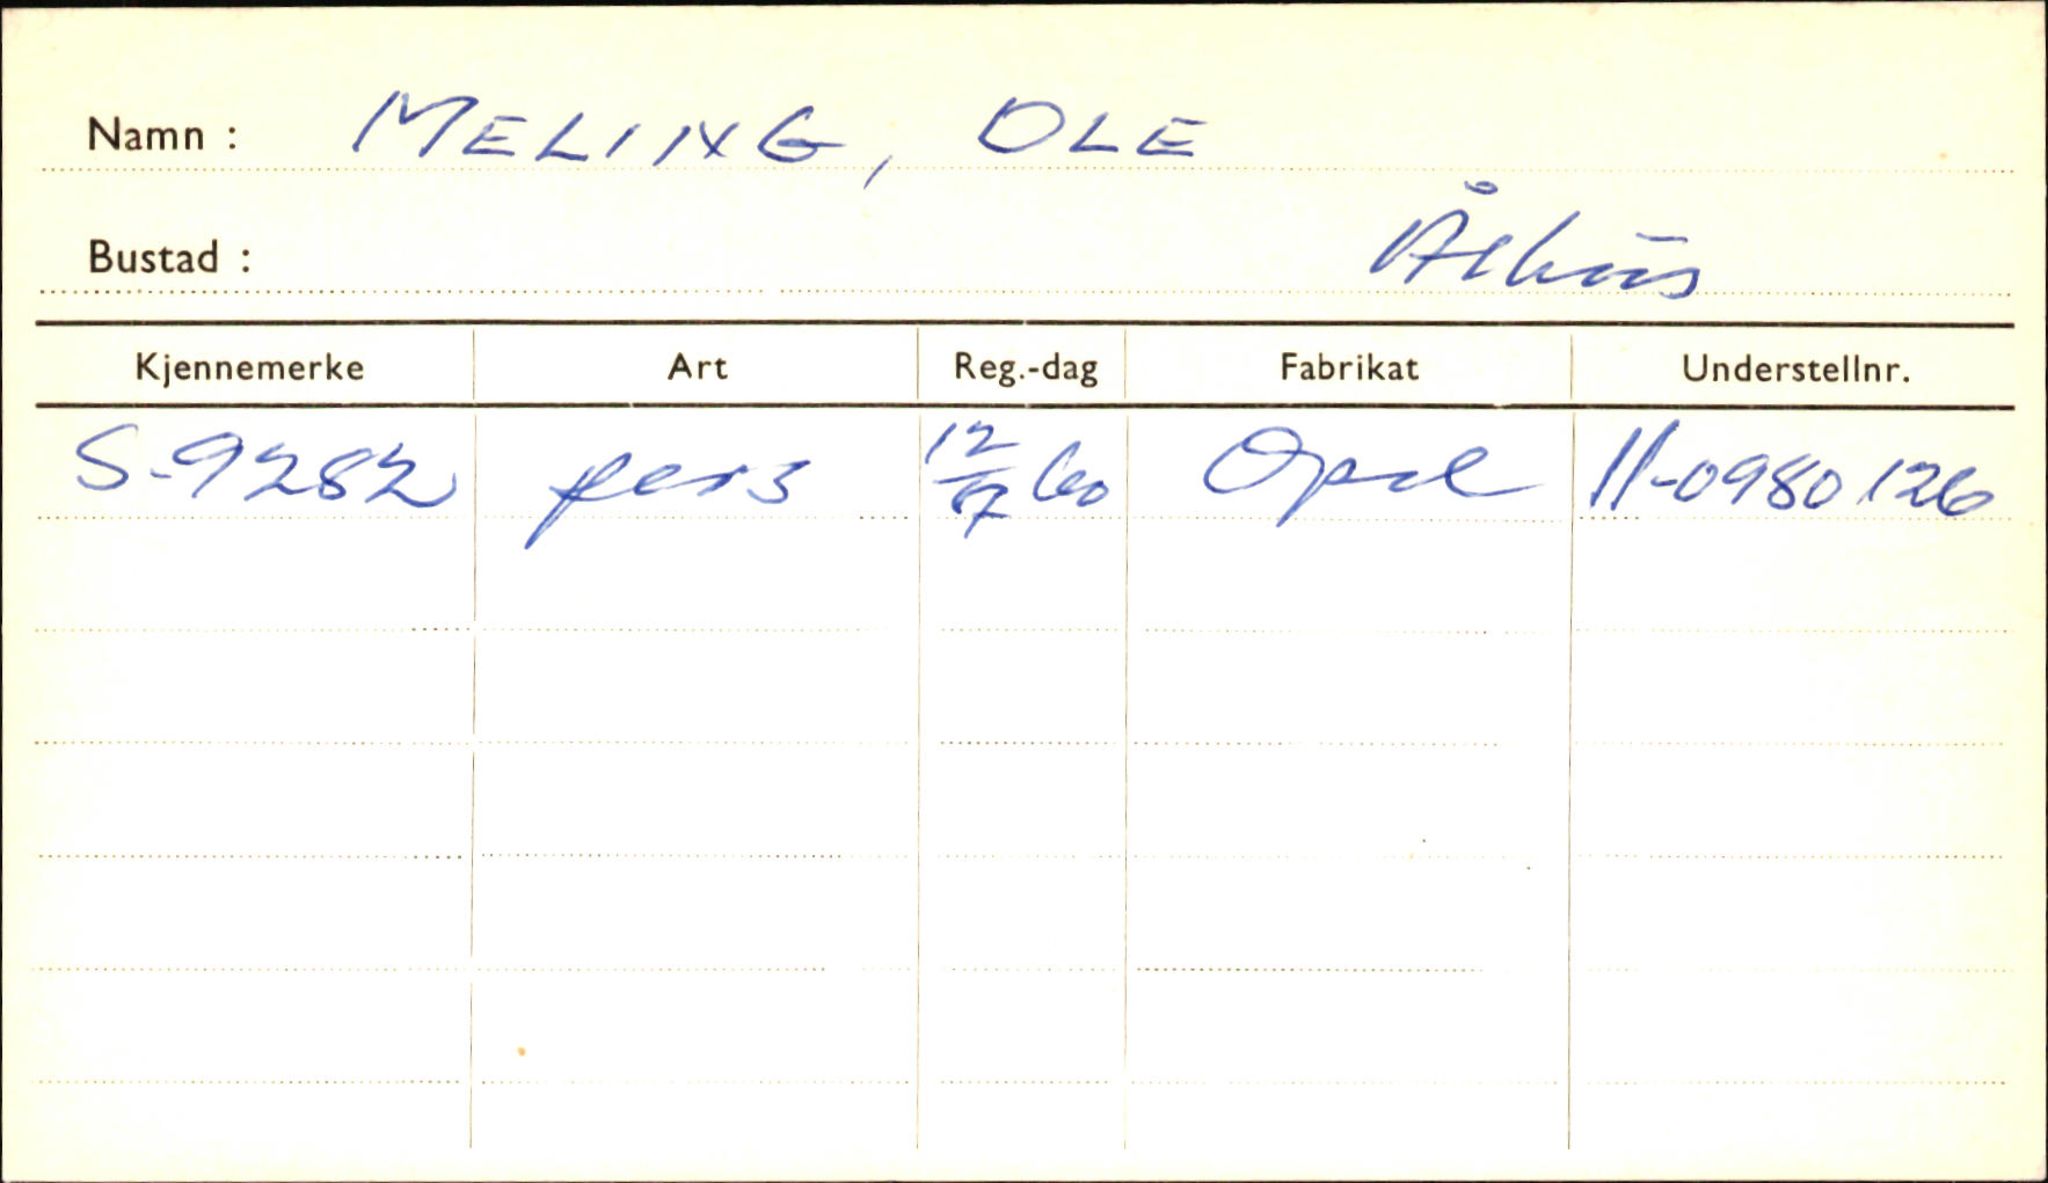 Namn : MELING, OLE
Bustad :
Kjennemerke Art Reg.-dag Fabrikat Understellnr.
S-9282 pers 60 Opel 11-0980126